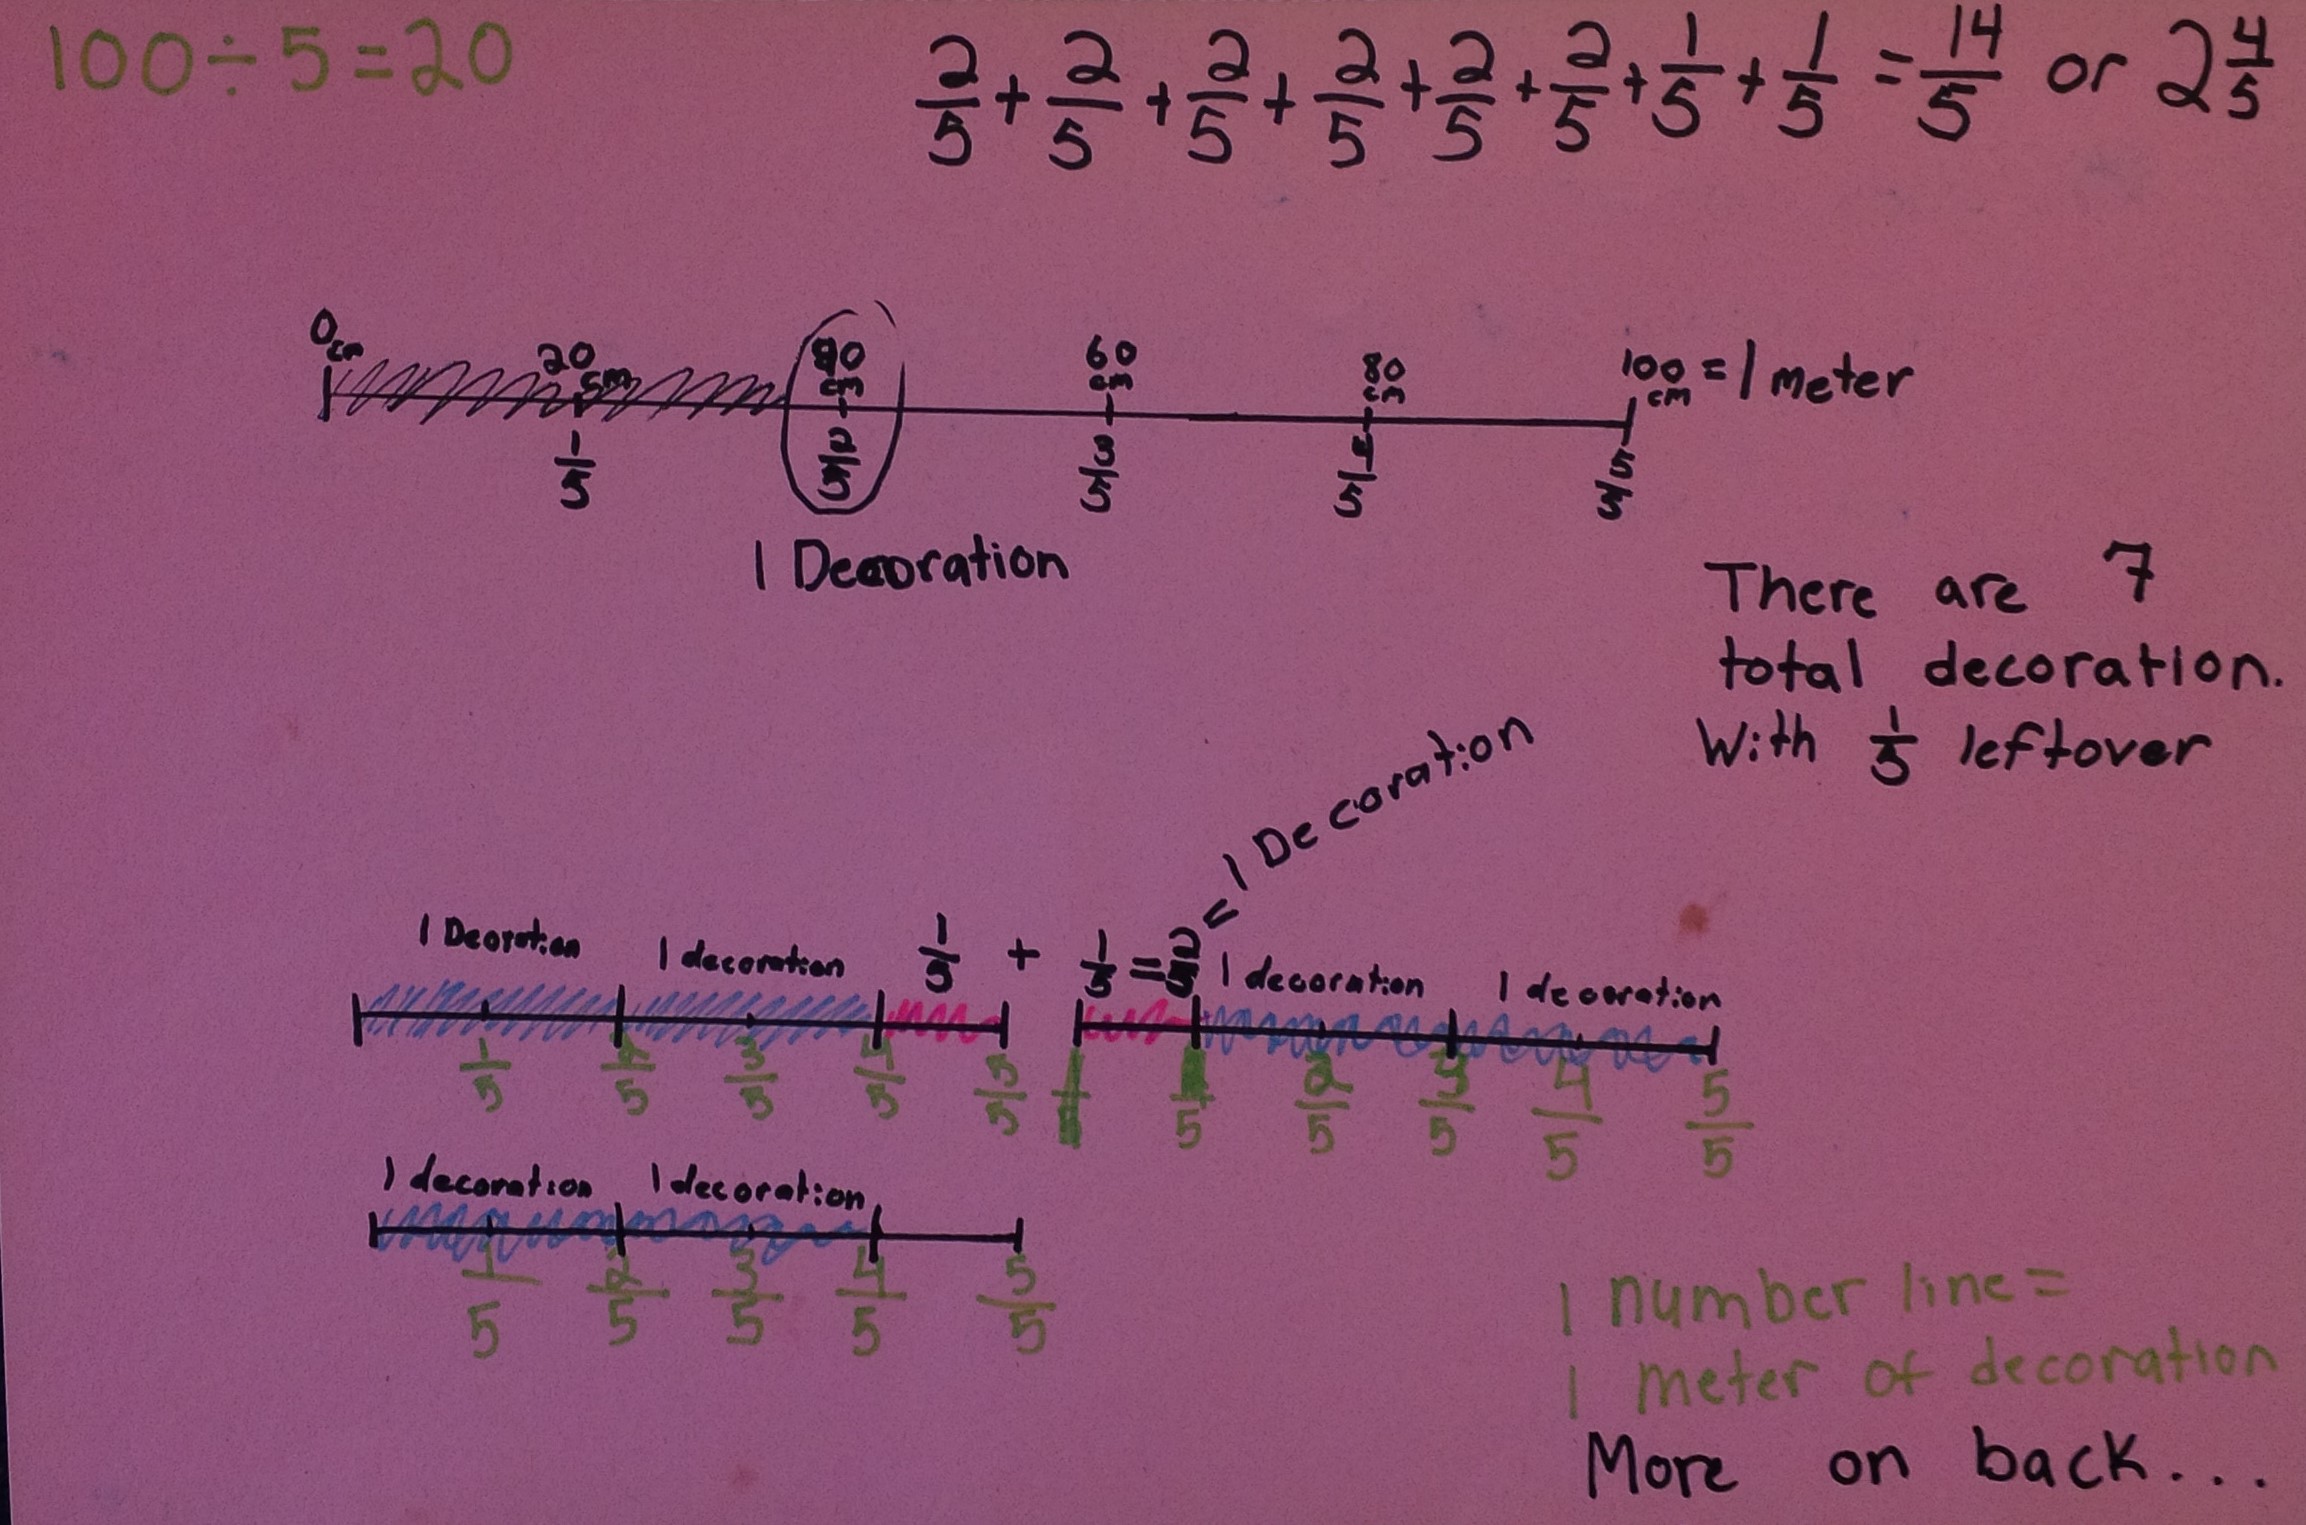 100÷5=20
2/5 + 2/5 + 2/5 + 2/5 + 2/5 + 2/5 + 1/5 + 1/5 = 14/5 or 2 4/5
0 cm 20 cm 40 cm 60 cm 80 cm 100 cm = 1 meter
1/5 2/5 3/5 4/5 5/5
1 Decoration
There are 7
total decoration.
With 1/5 leftover
= 1 Decoration
1 Deoration 1 decoration 1/5 + 1/5 = 2/5 1 decoration 1 decoration
1/5 2/5 3/5 4/5 5/5 1/5 2/5 3/5 4/5 5/5
1 decoration 1 decoration
1/5 2/5 3/5 4/5 5/5
1 number line =
1 meter of decoration
More on back...